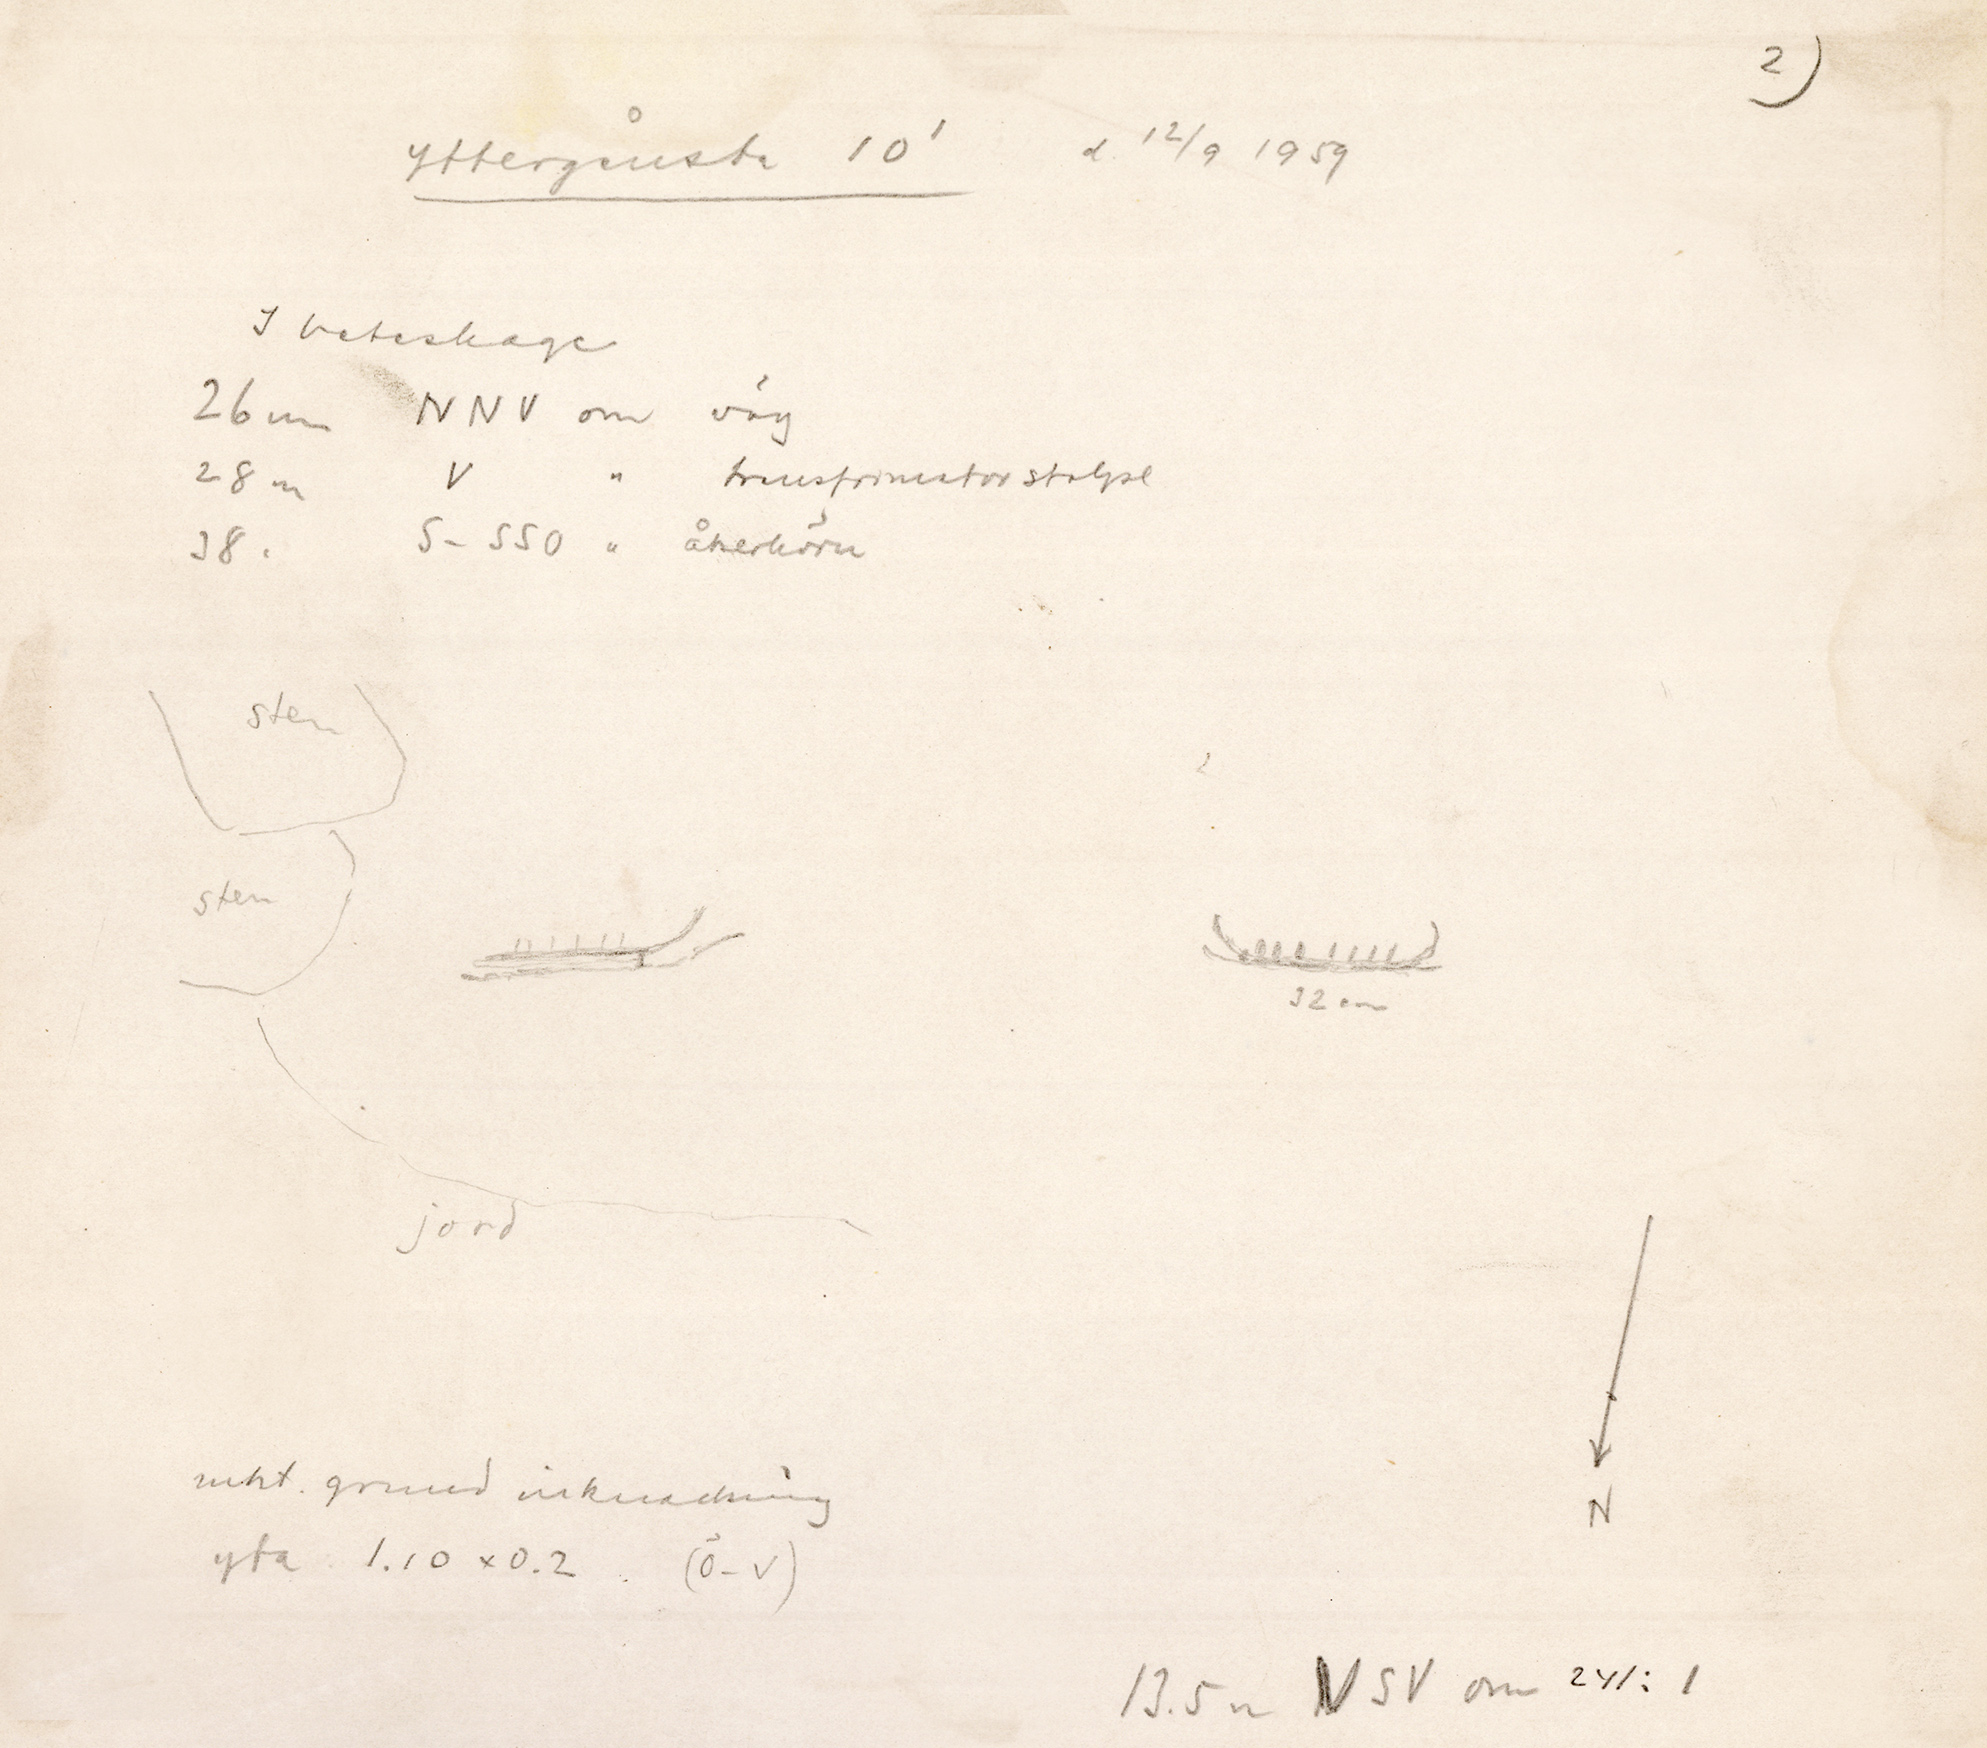 2)
Yttergånsta 10' d. 12/9 1959
I beteshage
26 m NNV om väg
28 m V " transformatorstolpe
38 " S-SSO " åkerhörn
sten
sten
32 cm
jord
N
mkt. grund inknackning
yta 1.10 x 0.2 (Ö-V)
13.5 m SV om 241:1